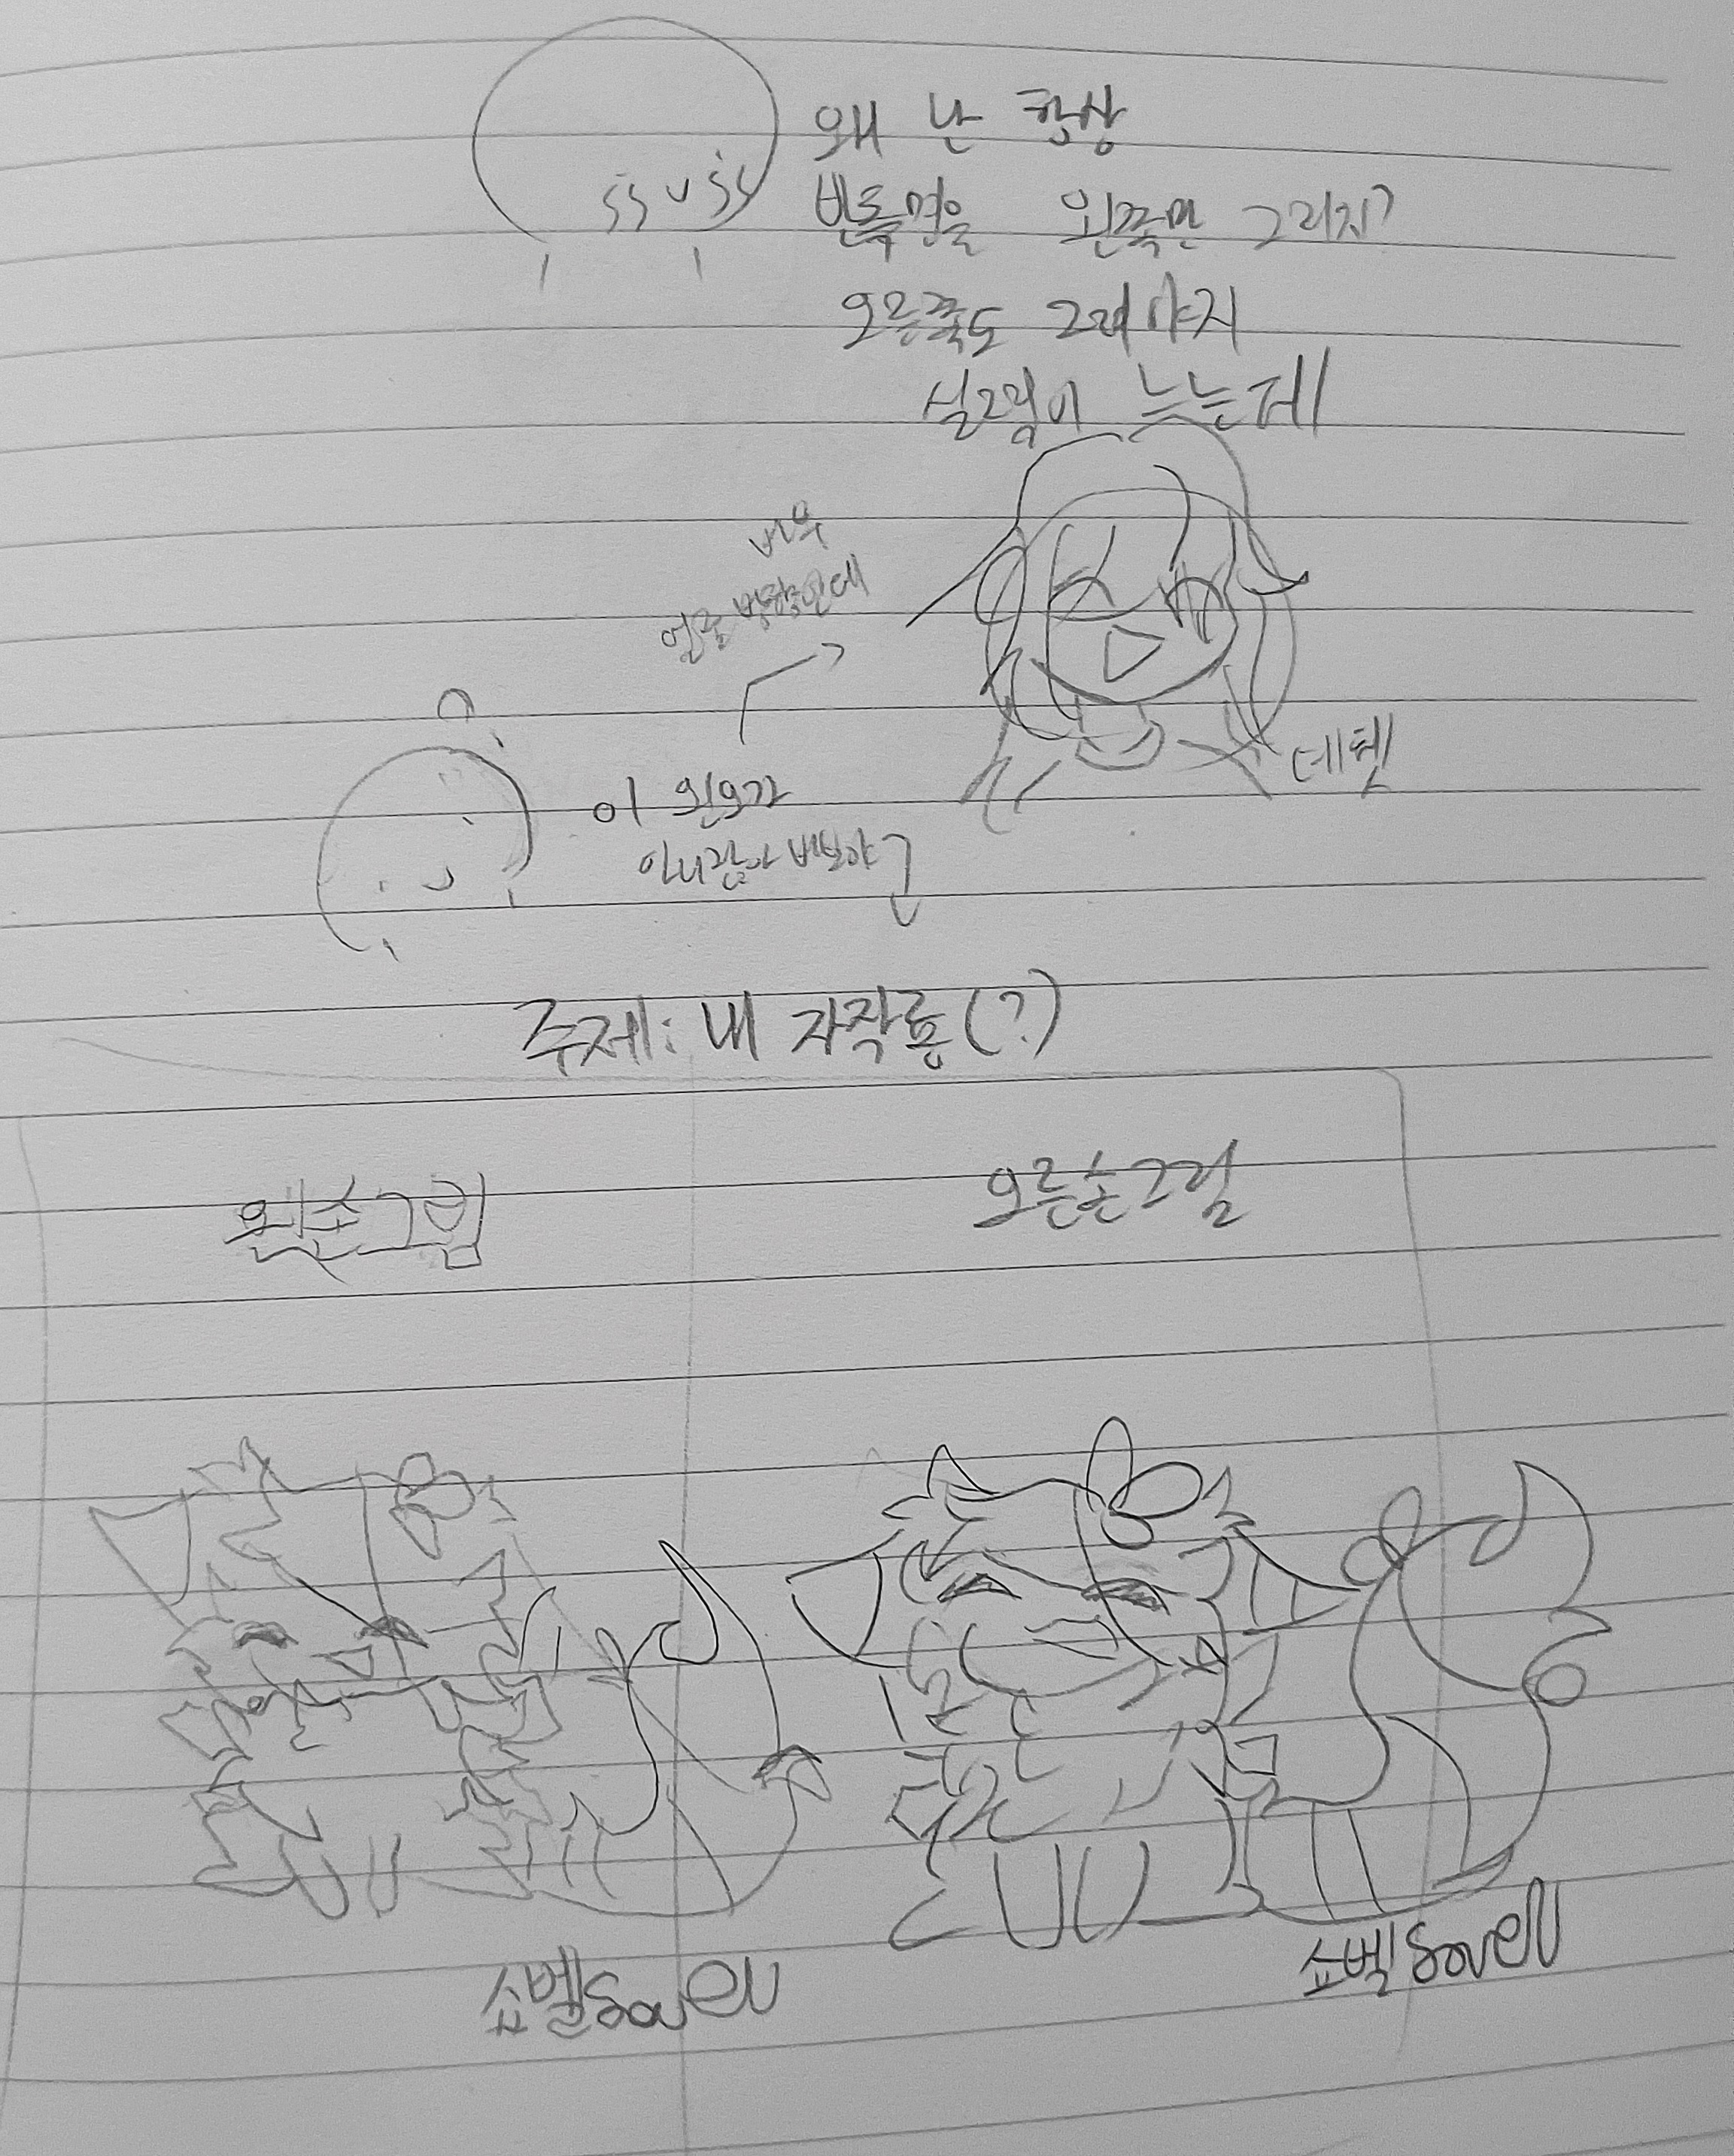 왜 난 항상
반측면을 왼쪽만 그리지?
오른쪽도 그려야지
실력이 느는데
매우
왼쪽 방향인데
데텟
이 왼오가
아니잖아 바보야
주제: 내 자작룡(?)
왼손그림
오른손그림
쇼벨 Sovell
쇼벨 Sovell